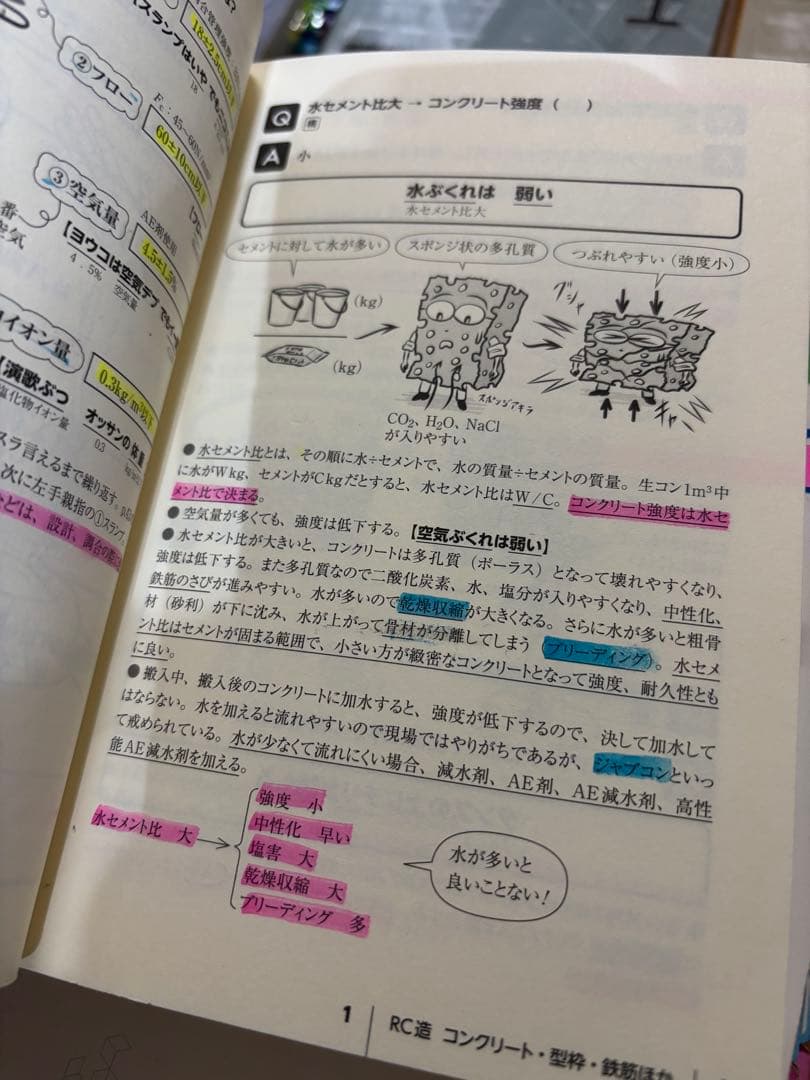 ②フロー
18±2.5cm以下
【スランプはいや
18
Fc:45~60N/mm²
60±10cm以下
③空気量
AE剤使用
4.5±1.5%
【ヨウコは空気デブ
4.5% 空気量
イオン量
0.3kg/m³以下
【演歌ぶつ オッサンの体重
塩化物イオン量 0.3
スラ言えるまで繰り返す。
次に左手親指の①スランプ、
などは、設計、調合の際に
Q 水セメント比大 → コンクリート強度( )
A 小
水ぶくれは 弱い
水セメント比大
セメントに対して水が多い
スポンジ状の多孔質
つぶれやすい(強度小)
(kg)
(kg)
グシャ
スポンジアキラ
ギャー
CO2、H2O、NaCl
が入りやすい
●水セメント比とは、その順に水÷セメントで、水の質量÷セメントの質量。生コン1m³中
に水がWkg、セメントがCkgだとすると、水セメント比はW/C。コンクリート強度は水セ
メント比で決まる。
●空気量が多くても、強度は低下する。【空気ぶくれは弱い】
●水セメント比が大きいと、コンクリートは多孔質(ポーラス)となって壊れやすくなり、
強度は低下する。また多孔質なので二酸化炭素、水、塩分が入りやすくなり、中性化、
鉄筋のさびが進みやすい。水が多いので乾燥収縮が大きくなる。さらに水が多いと粗骨
材(砂利)が下に沈み、水が上がって骨材が分離してしまう(ブリーディング)。水セメ
ント比はセメントが固まる範囲で、小さい方が緻密なコンクリートとなって強度、耐久性とも
に良い。
●搬入中、搬入後のコンクリートに加水すると、強度が低下するので、決して加水して
はならない。水を加えると流れやすいので現場ではやりがちであるが、ジャブコンといっ
て戒められている。水が少なくて流れにくい場合、減水剤、AE剤、AE減水剤、高性
能AE減水剤を加える。
水セメント比 大→
強度 小
中性化 早い
塩害 大
乾燥収縮 大
ブリーディング 多
水が多いと
良いことない!
1 RC造 コンクリート・型枠・鉄筋ほか